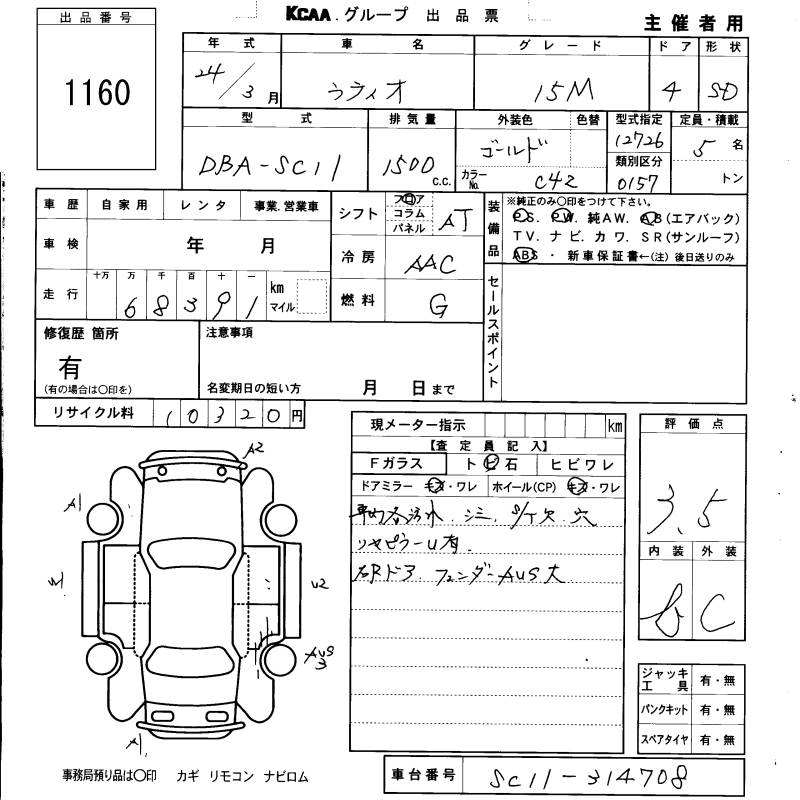 KCAA.グループ 出品票
主催者用
出品番号
1160
年式 車名 グレード ドア 形状
24/3月 ラティオ 15M 4 SD
型式 排気量 外装色 色替 型式指定 定員・積載
DBA-SC11 1500 c.c. ゴールド 12726 5名
カラーNo. C42 類別区分 0157 トン
車歴 自家用 レンタ 事業.営業車
車検 年 月
走行 十万 万 千 百 十 一
68391 km マイル
シフト フロア コラム パネル AT
冷房 AAC
燃料 G
装備品 ※純正のみ○印をつけて下さい。
P.S. P.W. 純AW. A.B(エアバック)
TV. ナビ. カワ. SR(サンルーフ)
ABS ・ 新車保証書←(注) 後日送りのみ
セールスポイント
修復歴 箇所
有
(有の場合は○印を)
注意事項
名変期日の短い方 月 日まで
リサイクル料 10320円
現メーター指示 km
【査定員記入】
Fガラス ト ビ 石 ヒビワレ
ドアミラー キズ・ワレ ホイール(CP) キズ・ワレ
車内各汚れ.シミ. S/T欠.穴
リヤピラーU有.
右Rドア フェンダーAUS大
評価点
3.5
内装 外装
b C
A2
A1
U2
AUS
3
A1
ジャッキ工具 有・無
パンクキット 有・無
スペアタイヤ 有・無
事務局預り品は○印 カギ リモコン ナビロム
車台番号 SC11-314708